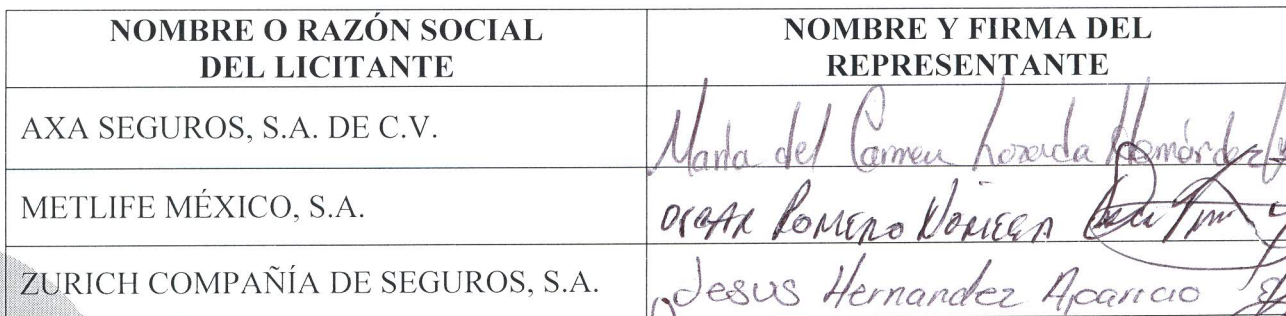 NOMBRE O RAZÓN SOCIAL
DEL LICITANTE
NOMBRE Y FIRMA DEL
REPRESENTANTE
AXA SEGUROS, S.A. DE C.V.
María del Carmen Lozada Hernández
METLIFE MÉXICO, S.A.
OSCAR ROMERO NORIEGA
ZURICH COMPAÑÍA DE SEGUROS, S.A.
Jesus Hernandez Aparicio